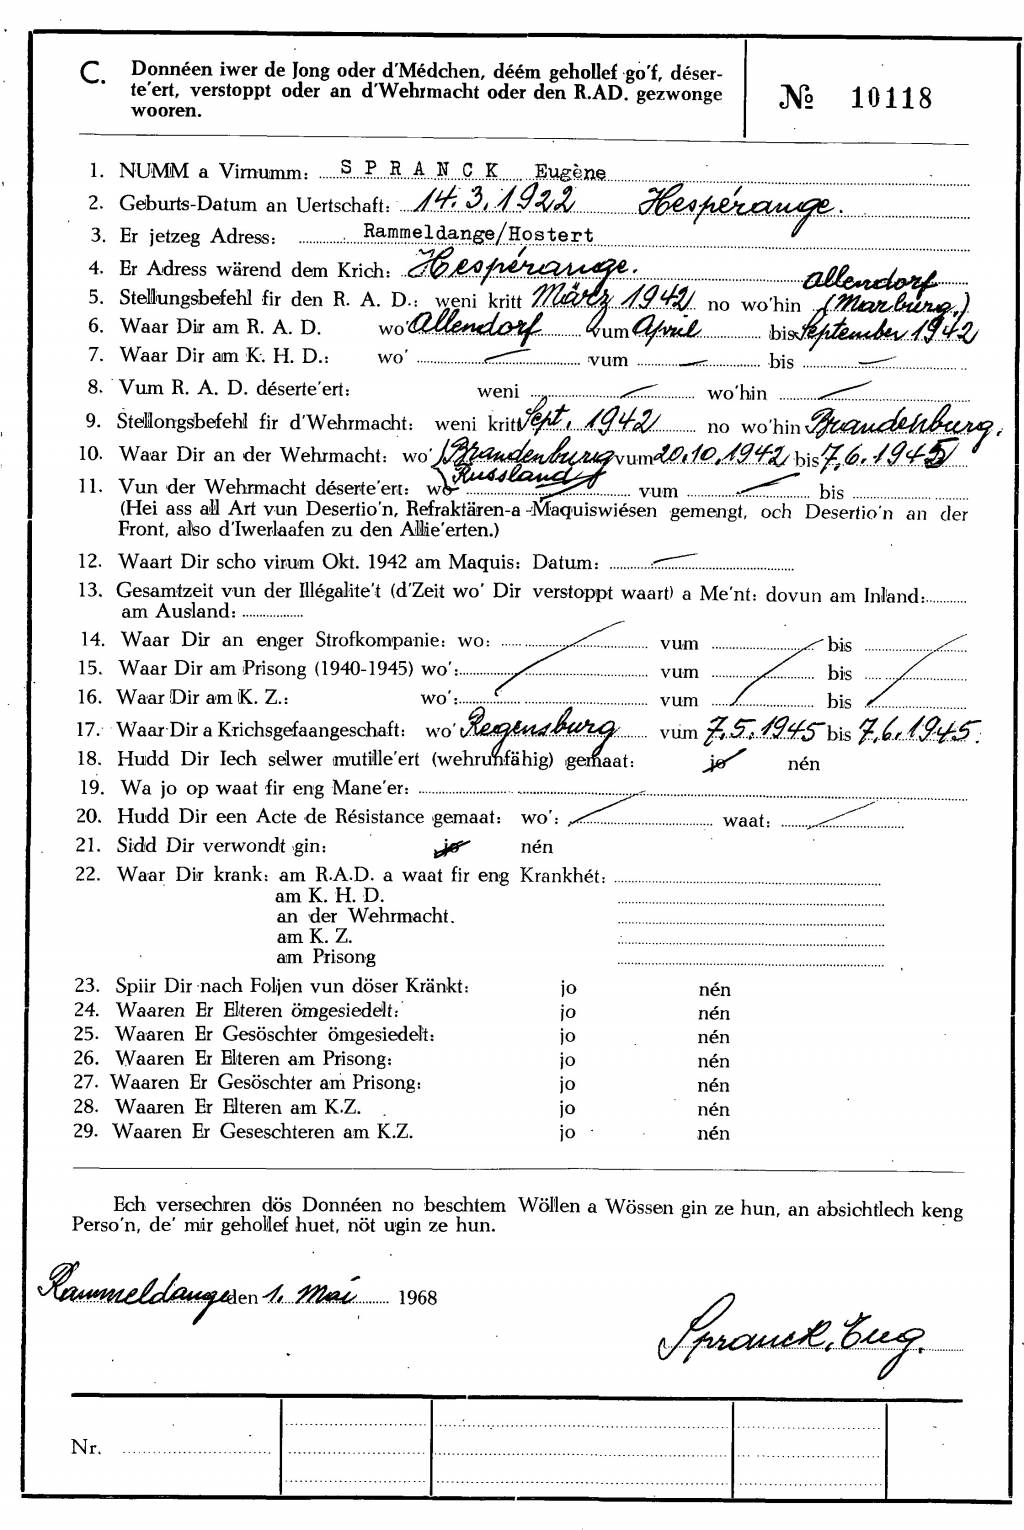 C. Donnéen iwer de Jong oder d'Médchen, déém gehollef go'f, déser-
te'ert, verstoppt oder an d'Wehrmacht oder den R.AD. gezwonge
wooren.
№ 10118
1. NUMM a Virnumm: SPRANCK Eugène
2. Geburts-Datum an Uertschaft: 14.3.1922 Hespérange.
3. Er jetzeg Adress: Rammeldange/Hostert
4. Er Adress wärend dem Krich: Hespérange.
5. Stellungsbefehl fir den R. A. D.: weni kritt März 1942 no wo'hin Allendorf (Marburg.)
6. Waar Dir am R. A. D. wo' Allendorf vum April bis September 1942
7. Waar Dir am K. H. D.: wo' vum bis
8. Vum R. A. D. déserte'ert: weni wo'hin
9. Stellongsbefehl fir d'Wehrmacht: weni kritt Sept. 1942 no wo'hin Brandenburg.
10. Waar Dir an der Wehrmacht: wo' Brandenburg vum 20.10.1942 bis 7.6.1945
Russland
11. Vun der Wehrmacht déserte'ert: wo vum bis
(Hei ass all Art vun Desertio'n, Refraktären-a-Maquiswiésen gemengt, och Desertio'n an der
Front, also d'Iwerlaafen zu den Allie'erten.)
12. Waart Dir scho virum Okt. 1942 am Maquis: Datum:
13. Gesamtzeit vun der Illégalite't (d'Zeit wo' Dir verstoppt waart) a Me'nt: dovun am Inland:
am Ausland:
14. Waar Dir an enger Strofkompanie: wo: vum bis
15. Waar Dir am Prisong (1940-1945) wo': vum bis
16. Waar Dir am K. Z.: wo': vum bis
17. Waar Dir a Krichsgefaangeschaft: wo' Regensburg vum 7.5.1945 bis 7.6.1945.
18. Hudd Dir Iech selwer mutille'ert (wehrunfähig) gemaat: jo nén
19. Wa jo op waat fir eng Mane'er:
20. Hudd Dir een Acte de Résistance gemaat: wo': waat:
21. Sidd Dir verwondt gin: jo nén
22. Waar Dir krank: am R.A.D. a waat fir eng Krankhét:
am K. H. D.
an der Wehrmacht.
am K. Z.
am Prisong
23. Spiir Dir nach Foljen vun döser Kränkt: jo nén
24. Waaren Er Elteren ömgesiedelt: jo nén
25. Waaren Er Gesöschter ömgesiedelt: jo nén
26. Waaren Er Elteren am Prisong: jo nén
27. Waaren Er Gesöschter am Prisong: jo nén
28. Waaren Er Elteren am K.Z. jo nén
29. Waaren Er Geseschteren am K.Z. jo nén
Ech versechren dös Donnéen no beschtem Wöllen a Wössen gin ze hun, an absichtlech keng
Perso'n, de' mir gehollef huet, nöt ugin ze hun.
Rammeldange den 1. Mai 1968
Spranck, Eug.
Nr.